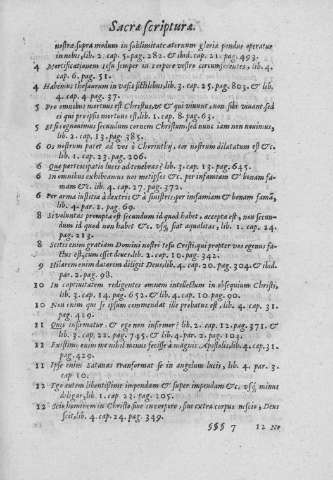 Sacræ scripturæ.
nostræ supra modum in sublimitate æternum gloriæ pondus operatur
in nobis, lib. 2. cap. 5. pag. 282. & ibid. cap. 21. pag. 493.
4 Mortificationem Iesu semper in corpore vestro circumferentes, lib. 4.
cap. 6. pag. 51.
4 Habemus thesaurum in vasis fictilibus, lib. 3. cap. 25. pag. 803. & lib.
4. cap. 4. pag. 37.
5 Pro omnibus mortuus est Christus, vt & qui viuunt, non sibi viuant, sed
ei qui pro ipsis mortuus est, lib. 1. cap. 8. pag. 63.
5 Et si cognouimus secundum carnem Christum, sed nunc iam non nouimus,
lib. 2. cap. 13. pag. 385.
6 Os nostrum patet ad vos ô Chorinthy, cor nostrum dilatatum est &c.
lib. 1. cap. 23. pag. 206.
6 Quæ participatio lucis ad tenebras? lib. 3. cap. 13. pag. 645.
6 In omnibus exhibeamus nos metipsos &c. per infamiam & bonam fa-
mam &c. lib. 4. cap. 27. pag. 372.
6 Per arma iustitiæ à dextris & à sinistris; per infamiam & bonam famā,
lib. 4. par. 2. pag. 69.
8 Si voluntas prompta est secundum id quod habet, accepta est, non secun-
dum id quod non habet &c. vsq; fiat æqualitas, lib. 1. cap. 24.
pag. 213.
8 Scitis enim gratiam Domini nostri Iesu Cristi, qui propter vos egenus fa-
ctus est, cum esset diues, lib. 2. cap. 10. pag. 342.
9 Hilarem enim datorem diligit Deus, lib. 4. cap. 20. pag. 304. & ibid.
par. 2. pag. 98.
10 In captiuitatem redigentes omnem intellectum in obsequium Christi,
lib. 3. cap. 14. pag. 652. & lib. 4. cap. 10. pag. 90.
10 Non enim qui se ipsum commendat ille probatus est, lib. 4. cap. 31.
pag. 419.
11 Quis infirmatur & ego non infirmor? lib. 2. cap. 12. pag. 371. &
lib. 3. cap. 22. pag. 745. & lib. 4. par. 2. pag. 104.
12 Existimo enim me nihil minus fecisse à magnis Apostolis, lib. 4. cap. 31.
pag. 429.
11 Ipse enim Satanas transformat se in angelum lucis, lib. 4. par. 3.
cap. 10.
12 Ego autem libentissime impendam & super impendam &c. vsq; minus
diligar, lib. 1. cap. 23. pag. 205.
12 Scio hominem in Christo, siue in corpore, siue extra corpus nescio, Deus
scit, lib. 4. cap. 24. pag. 349.
§§§ 7 12 Ne